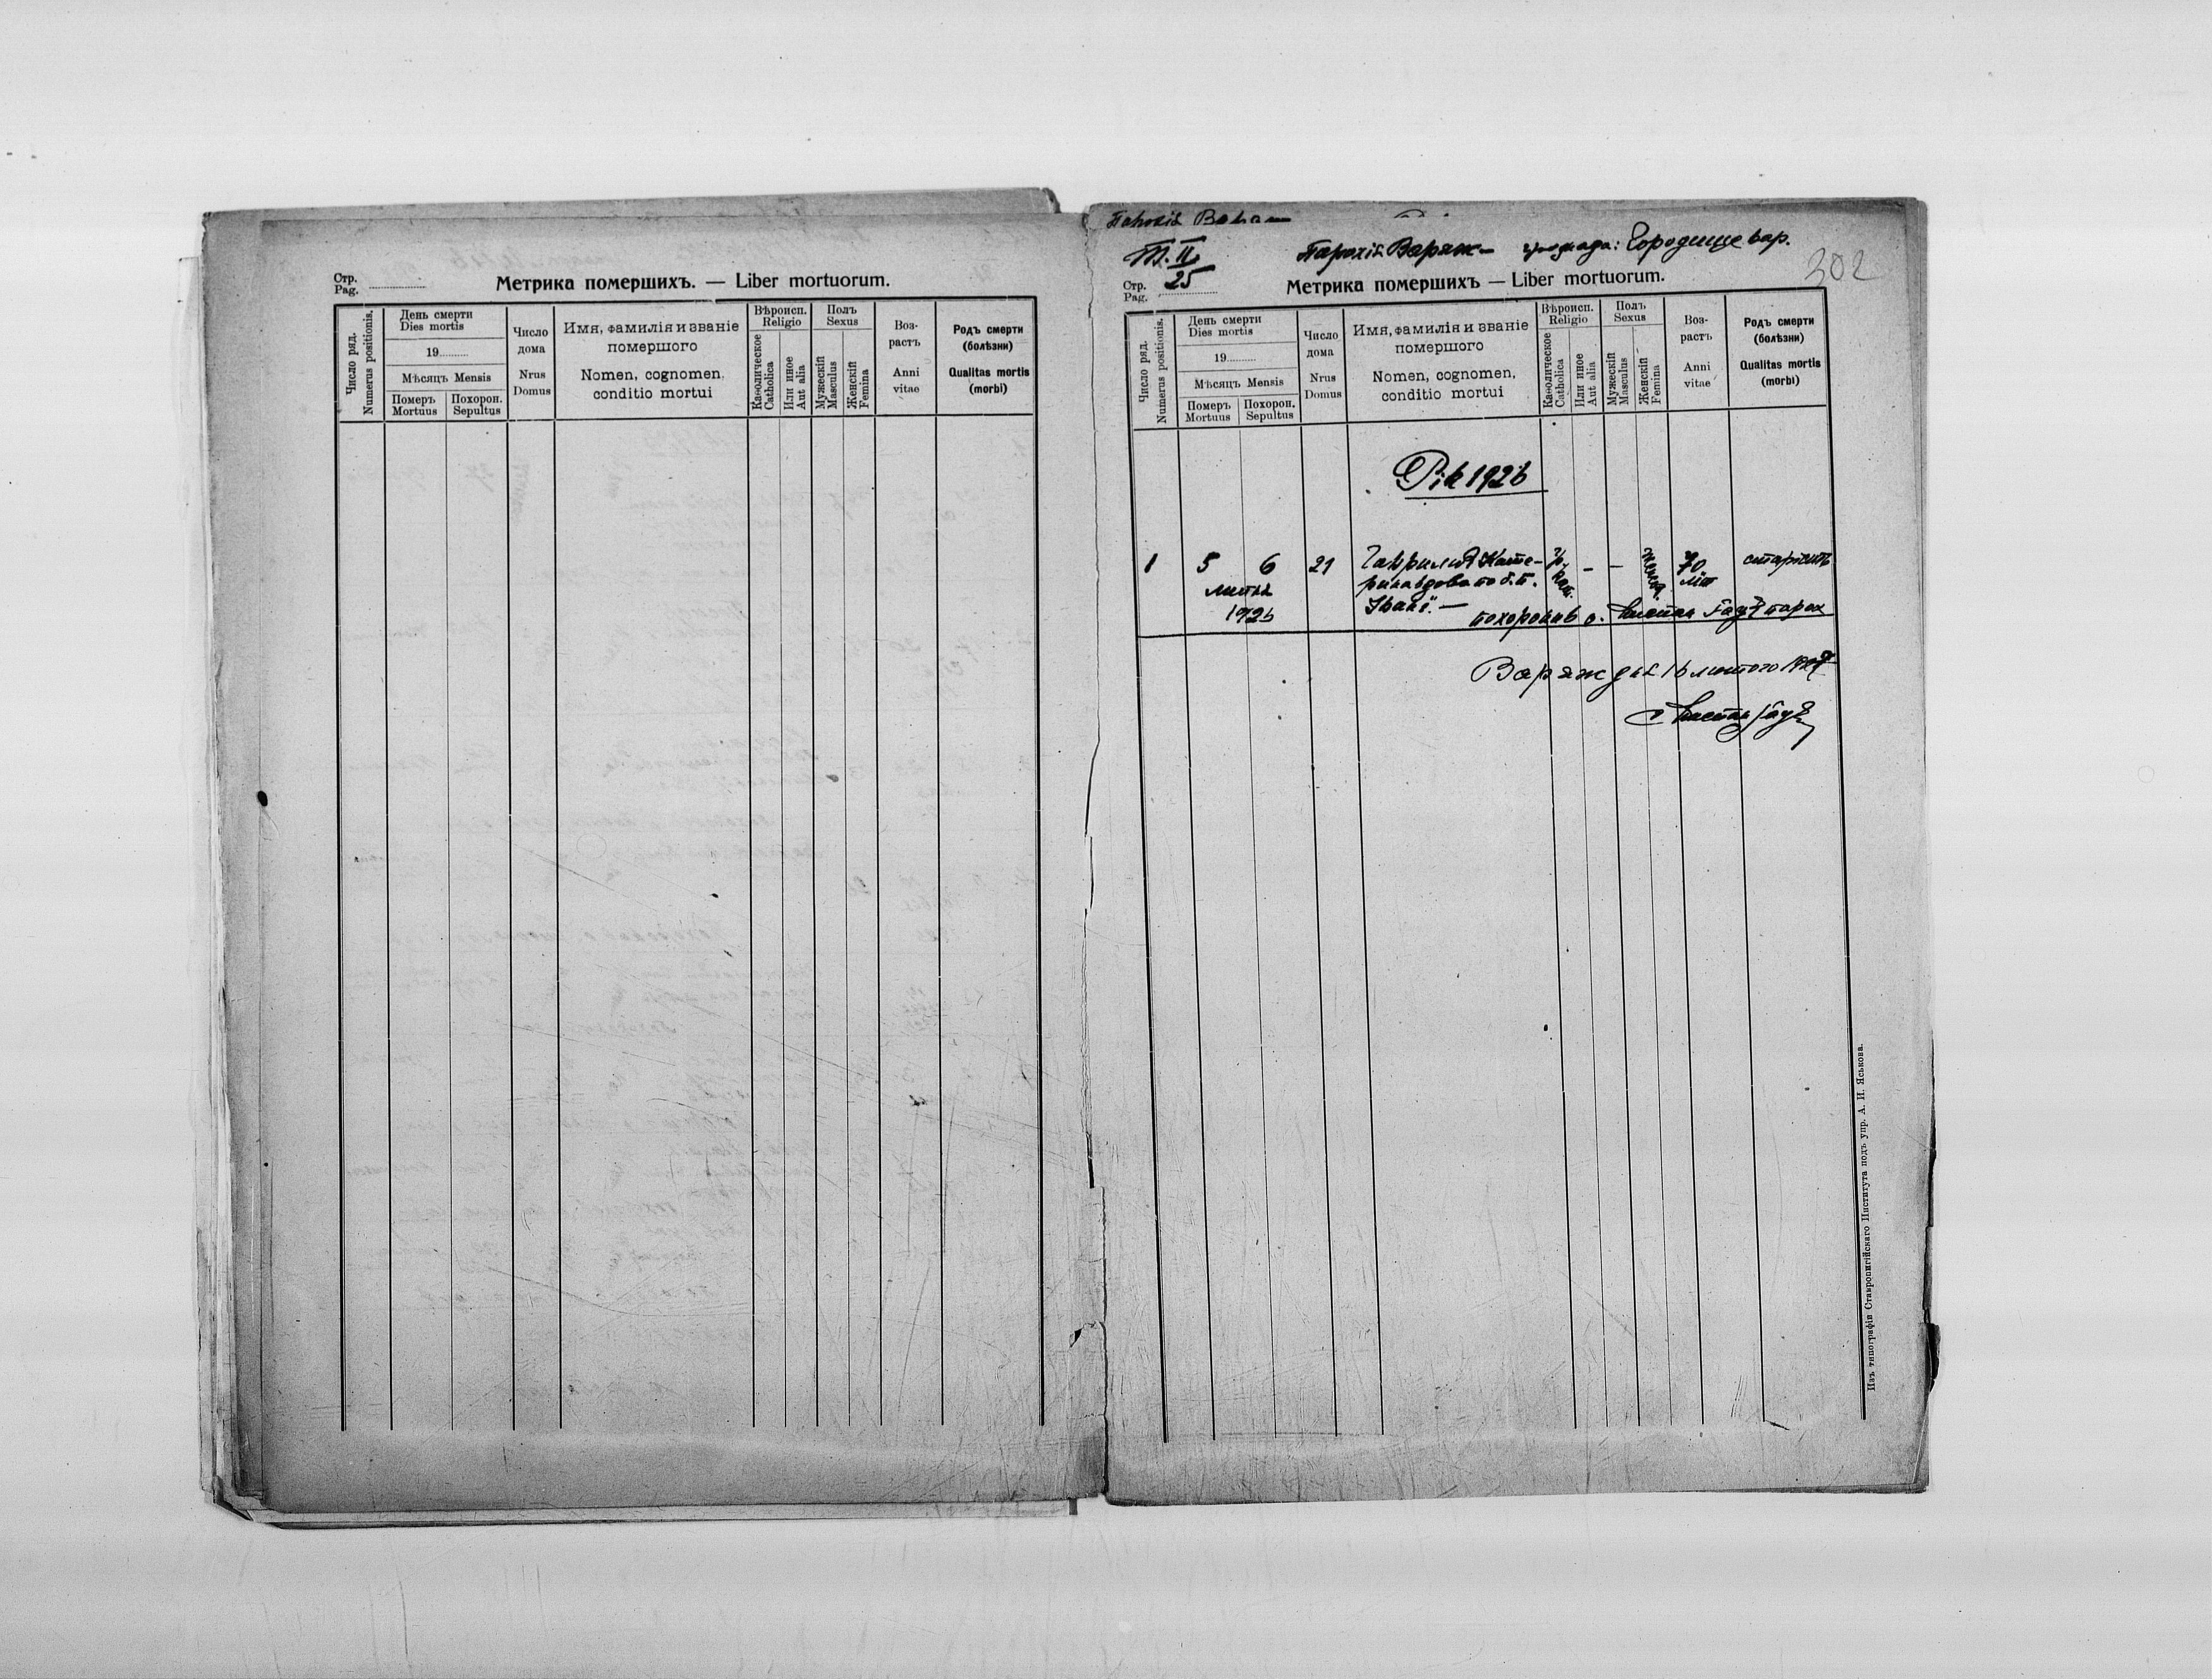 Стр.
Pag.
Метрика померших​ъ. — Liber mortuorum.
Число ряд.
Numerus positionis.
День смерти
Dies mortis
19
Мѣсяцъ Mensis
Померъ
Mortuus
Похорон.
Sepultus
Число
дома
Nrus
Domus
Имя, фамилія и званіе
помершого
Nomen, cognomen,
conditio mortui
Вѣроисп.
Religio
Каѳолическое
Catholica
Или иное
Aut alia
Полъ
Sexus
Мужескій
Masculus
Женскій
Femina
Воз-
растъ
Anni
vitae
Родъ смерти
(болѣзни)
Qualitas mortis
(morbi)
Парохія
Т. II
25
Парохія Варяж — громада: Городище вар.
302
Стр.
Pag.
Метрика помершихъ — Liber mortuorum.
Число ряд.
Numerus positionis.
День смерти
Dies mortis
19
Мѣсяцъ Mensis
Померъ
Mortuus
Похорон.
Sepultus
Число
дома
Nrus
Domus
Имя, фамилія и званіе
помершого
Nomen, cognomen,
conditio mortui
Вѣроисп.
Religio
Каѳолическое
Catholica
Или иное
Aut alia
Полъ
Sexus
Мужескій
Masculus
Женскій
Femina
Воз-
растъ
Anni
vitae
Родъ смерти
(болѣзни)
Qualitas mortis
(morbi)
Рік 1926
1 5 6 21 Кате- гр. – – 70 старість
рина вдова по б. п. кат. літ
1926 Івані. —
похоронив о. парох
Варяж дня 16 лютого 1927
Изъ типографіи Ставропигійскаго Института подъ упр. А. И. Яськова.